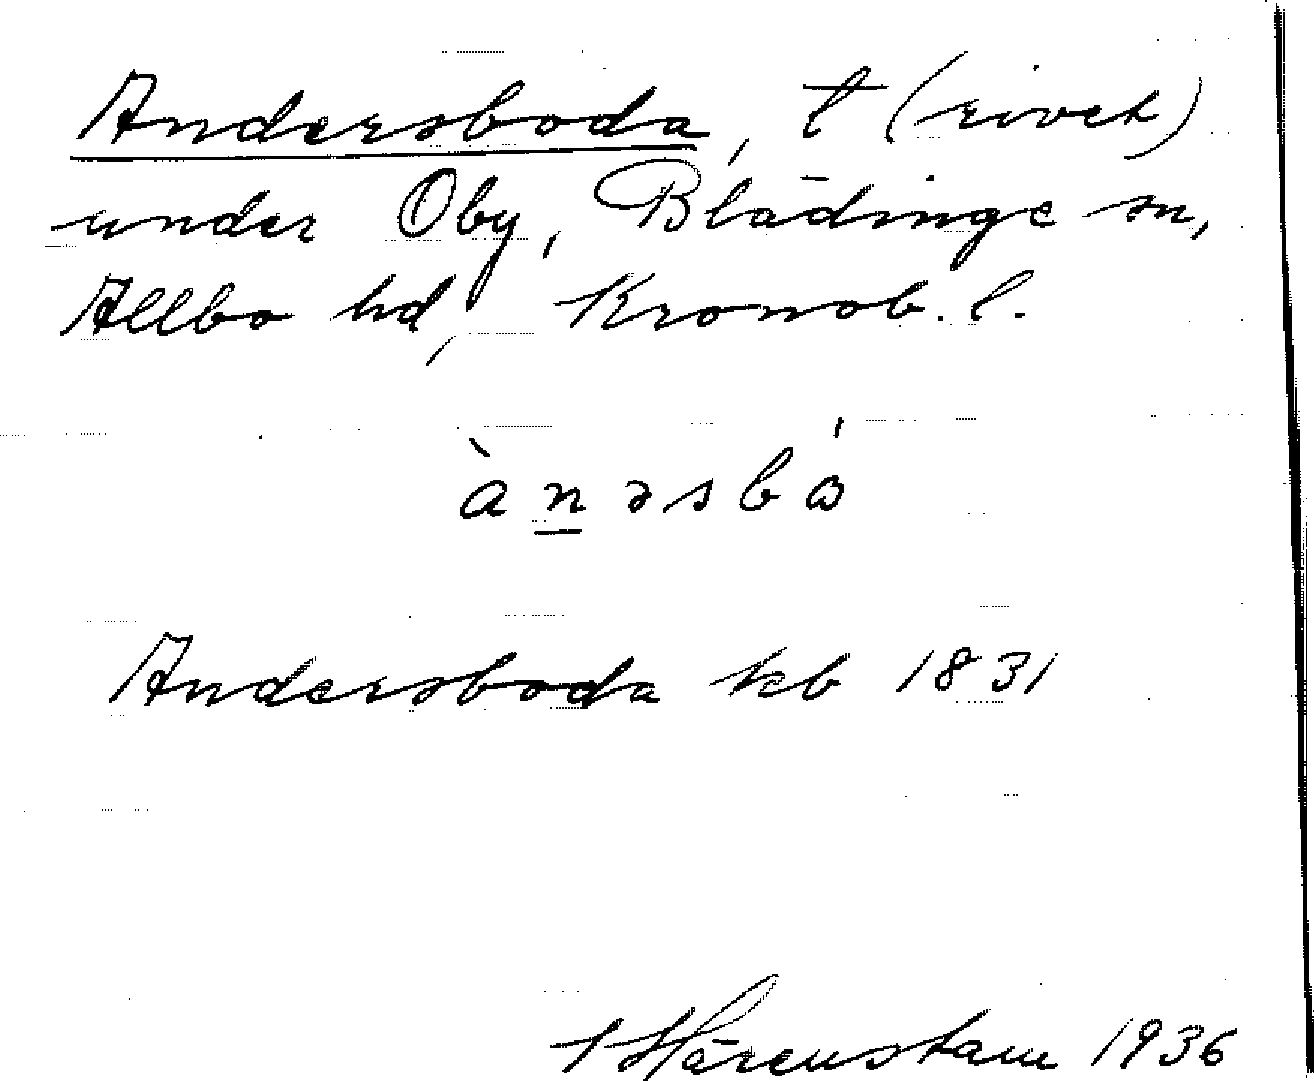 Andersboda, t (rivet)
under Oby, Blädinge sn,
Allbo hd, Kronob. l.
ànəsbɷ́
Andersboda kb 1831
Härenstam 1936